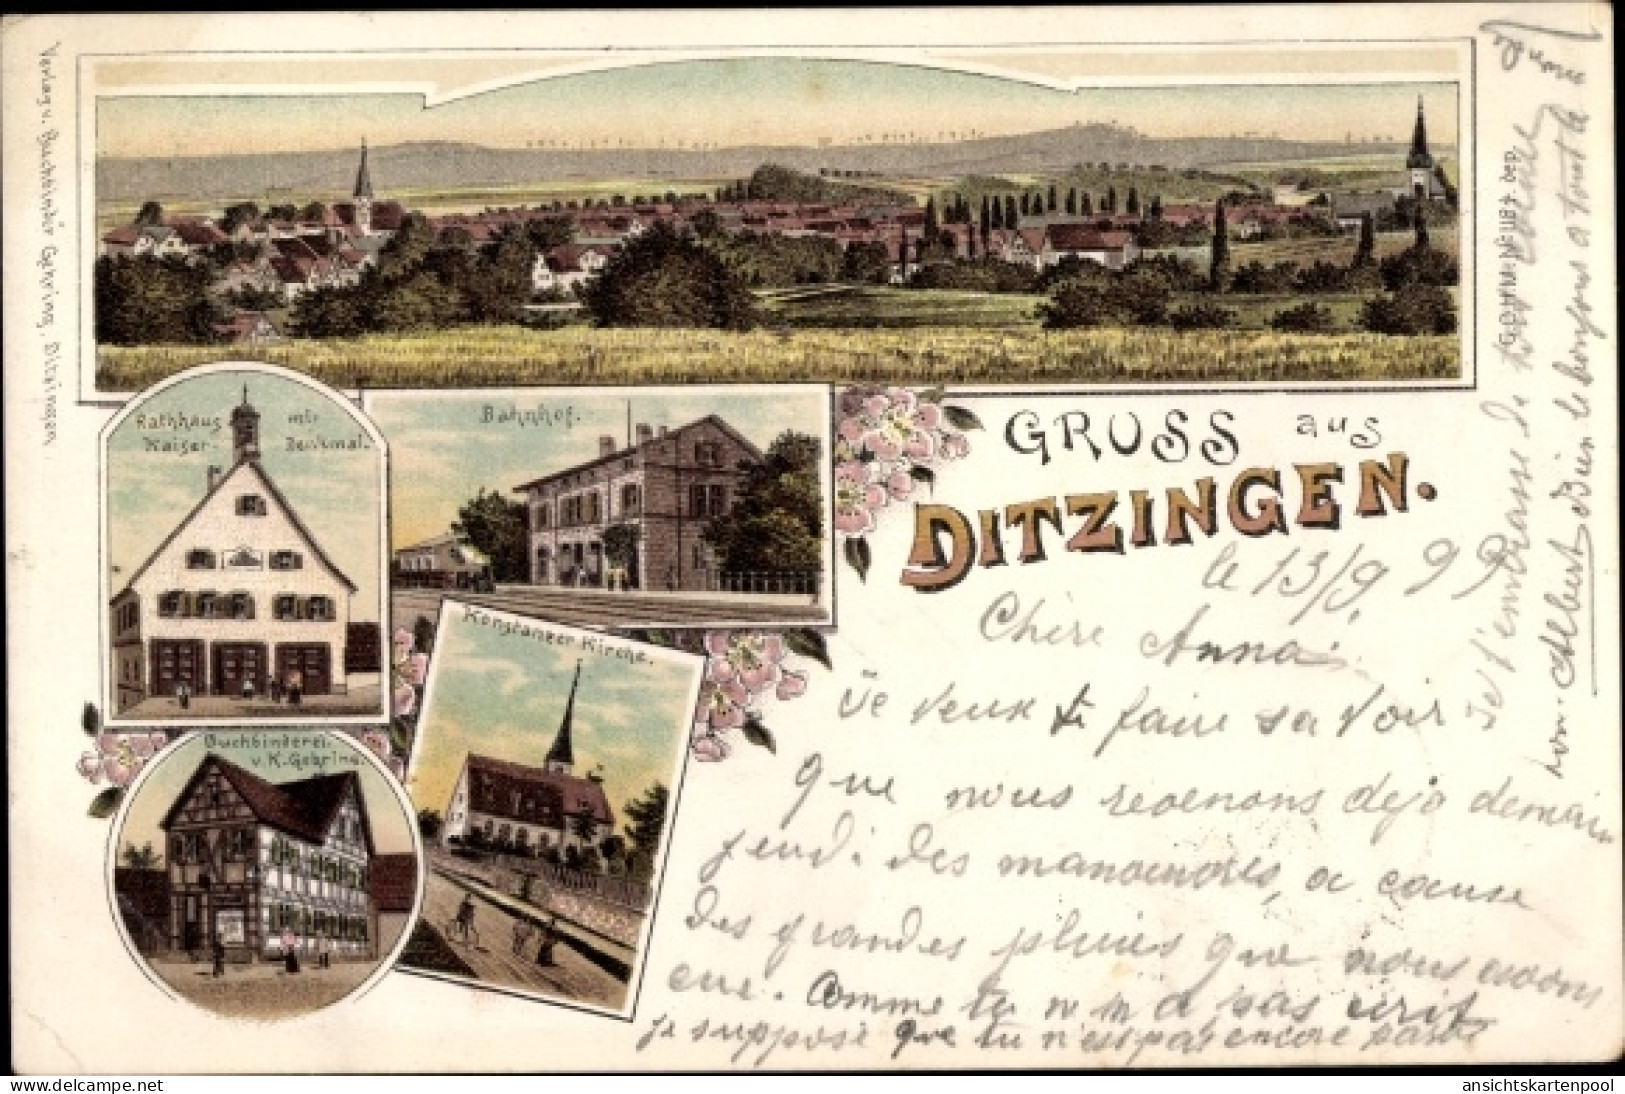 Verlag v. Buchbinder Gehring, Ditzingen.
Rathhaus mit
Kaiser- Denkmal.
Bahnhof.
GRUSS aus
DITZINGEN.
Konstanzer Kirche.
Buchbinderei
v. K. Gehring.
le 13/9. 99
Chère Anna
Je veux te faire savoir
que nous revenons déjà demain
jeudi des manoeuvres, a cause
des grandes pluies que nous avons
eue. Comme tu n'm'a pas écrit
je suppose que tu n'es pas encore
Je t'embrasse de tout coeur
ton Albert Bien le bonjour a tout le
monde